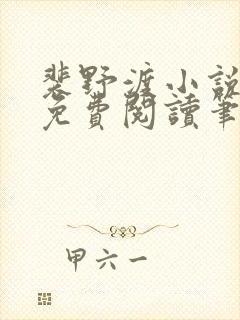 裴野渡小說
免費閱讀筆
甲六一